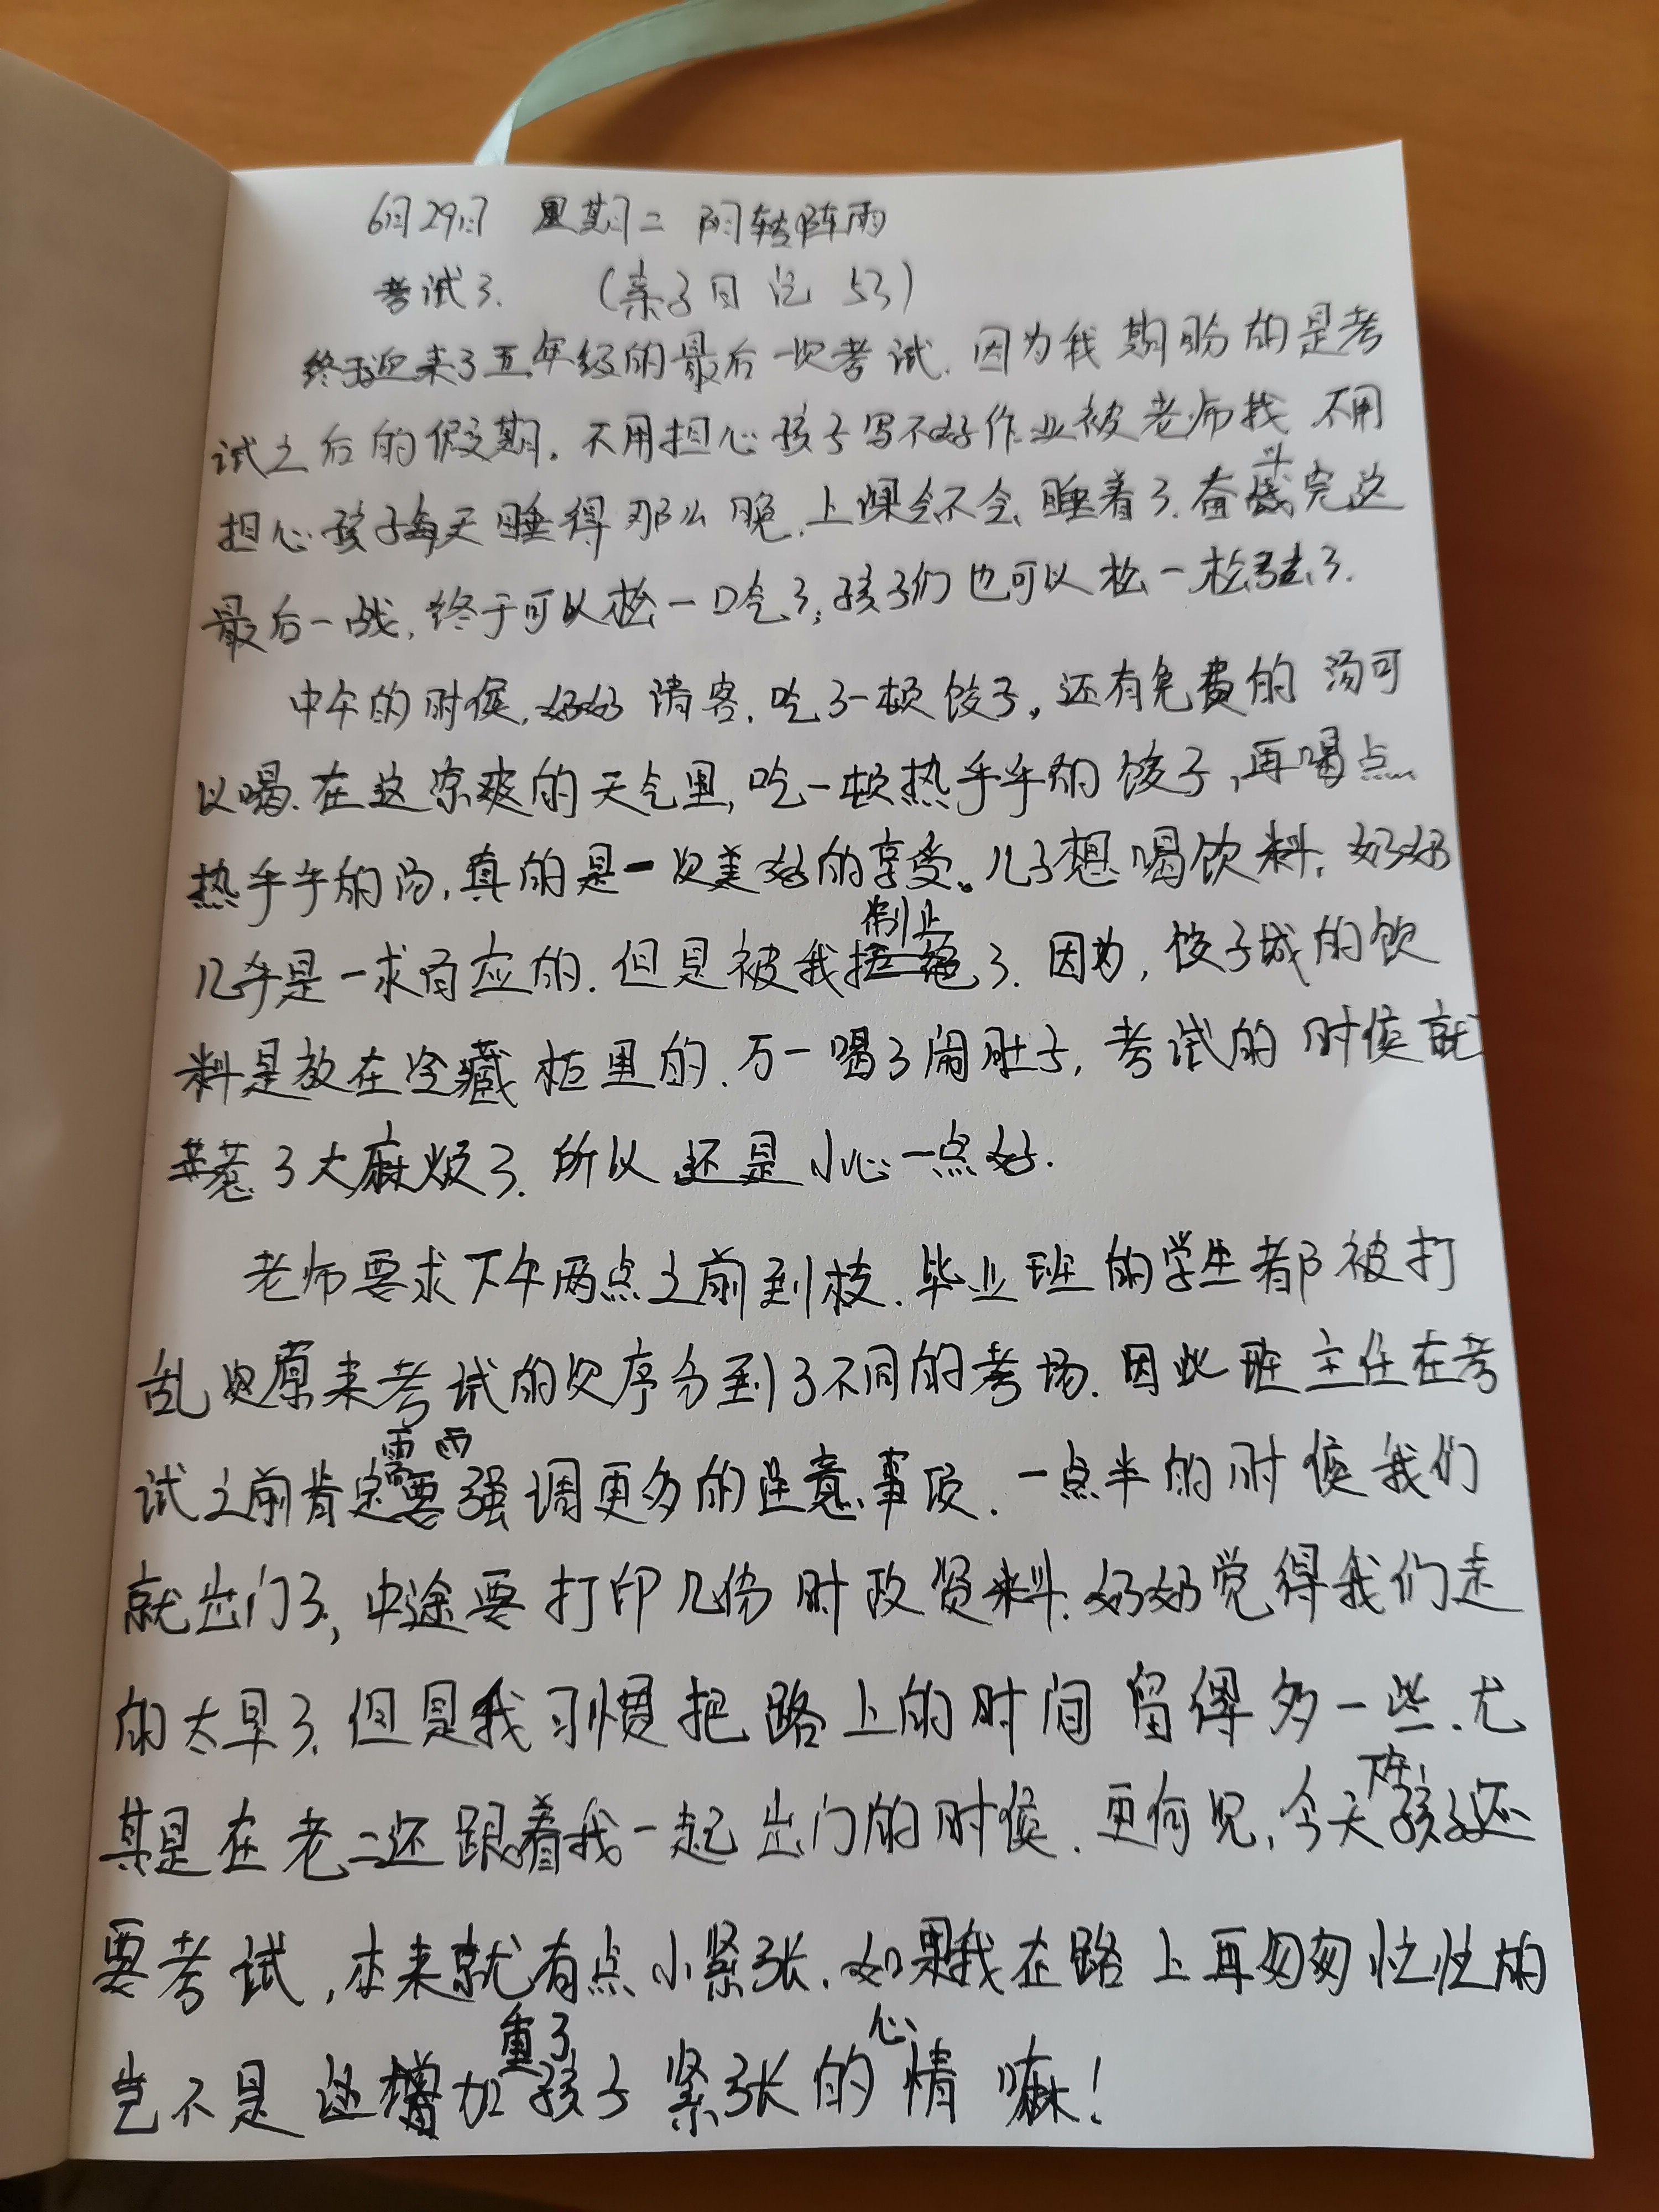 6月29日 星期二 阴转阵雨
考试了. (亲子日记 53)
终于迎来了五年级的最后一次考试.因为我期盼的是考
试之后的假期。不用担心孩子写不好作业被老师找 不用
担心孩子每天睡得那么晚.上课会不会睡着了.奋战斗完这
最后一战,终于可以松一口气了,孩子们也可以松一松弦了.
中午的时候,奶奶请客.吃了一顿饺子。还有免费的汤可
以喝.在这凉爽的天气里,吃一顿热乎乎的饺子,再喝点
热乎乎的汤,真的是一次美好的享受。儿子想喝饮料.奶奶
几乎是一求百应的.但是被我制止了.因为,饺子城的饮
料是放在冷藏柜里的.万一喝了闹肚子,考试的时候就
惹了大麻烦了.所以还是小心一点好.
老师要求下午两点之前到校.毕业班的学生都被打
乱原来考试的次序分到了不同的考场.因此班主任在考
试之前肯定需要强调更多的注意事项.一点半的时候我们
就出门了,中途要打印几份时政资料.奶奶觉得我们走
的太早了.但是我习惯把路上的时间留得多一些.尤
其是在老二还跟着我一起出门的时候.更何况,今天下午孩子还
要考试,本来就有点小紧张.如果我在路上再匆匆忙忙的
岂不是加重了孩子紧张的心情嘛!